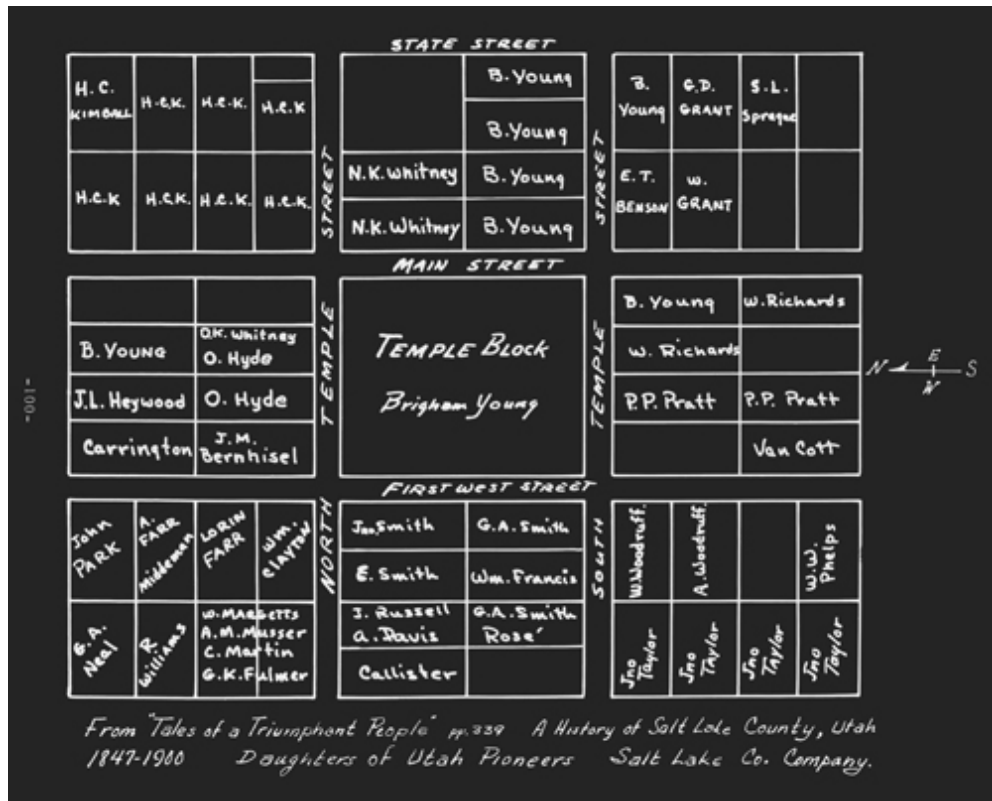 STATE STREET
H. C.
KIMBALL
H.C.K.
H.C.K.
H.C.K
H.C.K
H.C.K.
H.C.K.
H.C.K.
STREET
B. Young
B. Young
N.K. Whitney
B. Young
N.K. Whitney
B. Young
STREET
B.
Young
G.D.
GRANT
S.L.
Sprague
E.T.
BENSON
W.
GRANT
MAIN STREET
B. YOUNG
O.K. Whitney
O. Hyde
J.L. Heywood
O. Hyde
Carrington
J.M.
Bernhisel
TEMPLE
TEMPLE BLOCK
Brigham Young
TEMPLE
B. Young
W. Richards
W. Richards
P.P. Pratt
P.P. Pratt
Van Cott
N
E
S
W
-100-
FIRST WEST STREET
John
PARK
A.
FARR
Middleman
LORIN
FARR
Wm.
CLAYTON
G.A.
Neal
R.
Williams
W. MARGETTS
A.M. Musser
C. Martin
G.K. Fulmer
NORTH
Jno. Smith
G.A. Smith
E. Smith
Wm. Francis
J. Russell
A. Davis
G.A. Smith
Rose'
Callister
SOUTH
W. Woodruff.
A. Woodruff.
W.W.
Phelps
Jno
Taylor
Jno
Taylor
Jno
Taylor
Jno
Taylor
From "Tales of a Triumphant People" pp. 339 A History of Salt Lake County, Utah
1847-1900 Daughters of Utah Pioneers Salt Lake Co. Company.